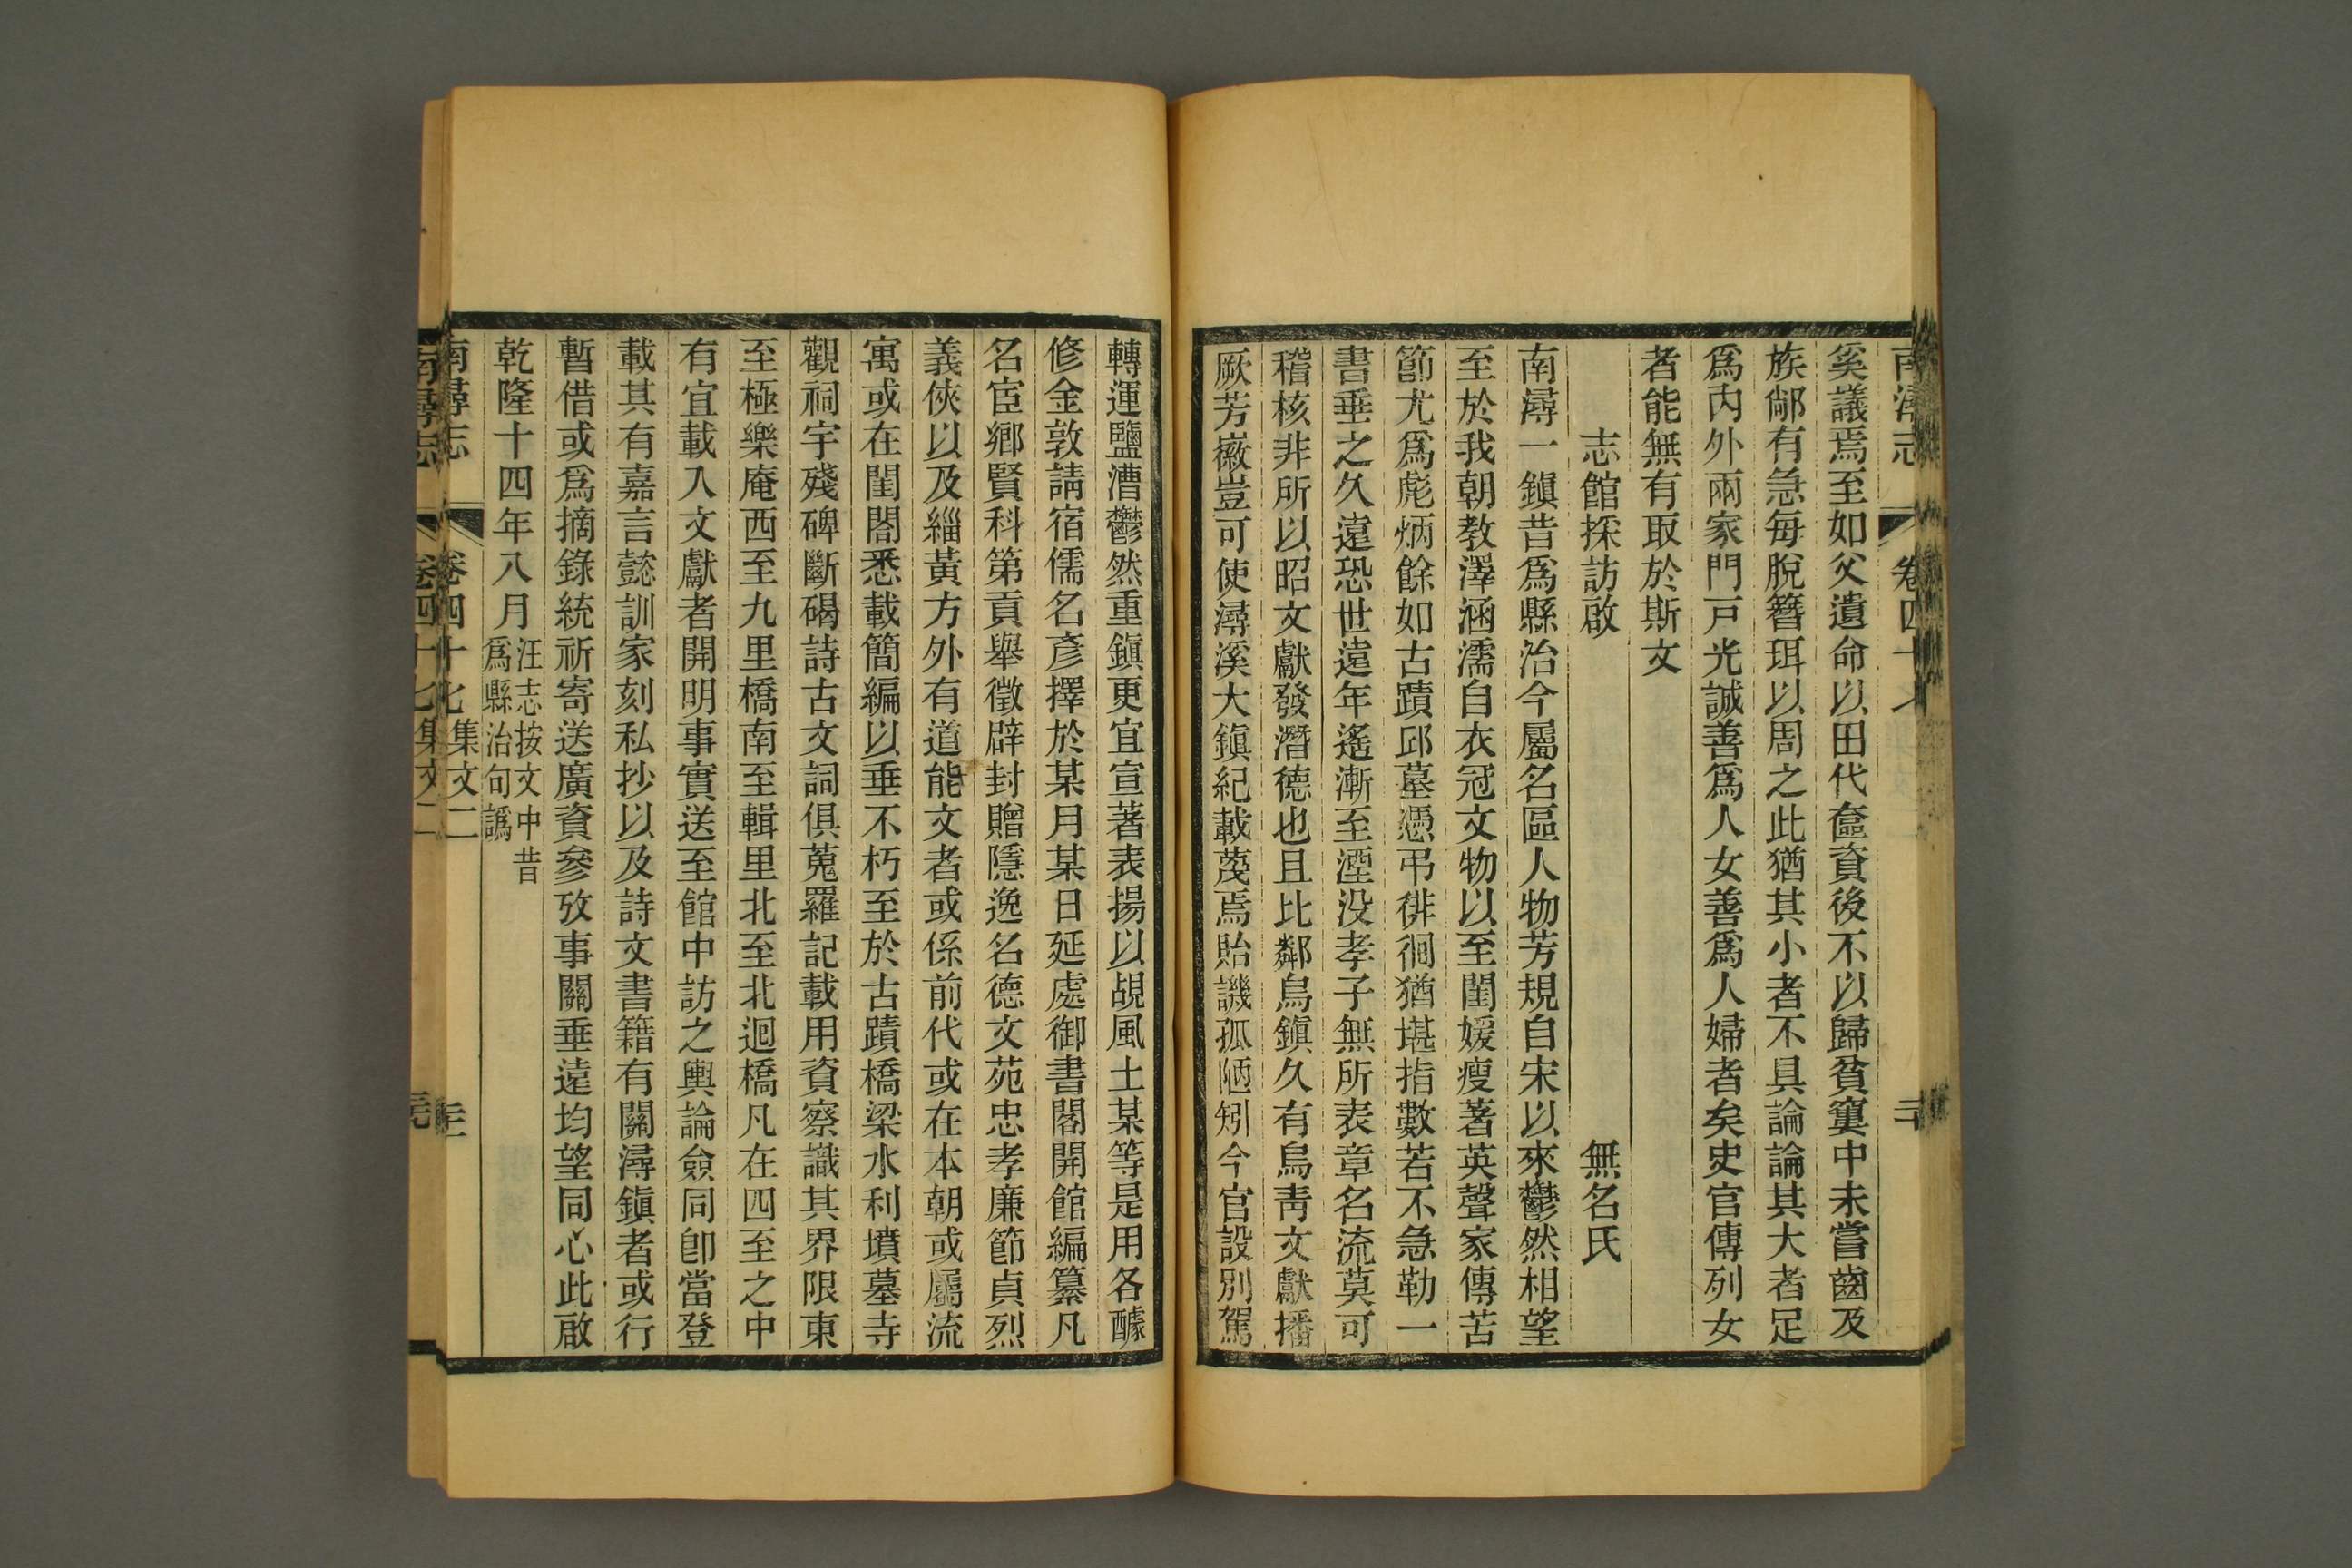 南潯志 卷四十七 二十
奚議焉至如父遺命以田代奩資後不以歸貧窶中未嘗齒及
族鄰有急每脫簪珥以周之此猶其小者不具論論其大者足
爲內外兩家門戸光誠善爲人女善爲人婦者矣史官傳列女
者能無有取於斯文
志館採訪啟 無名氏
南潯一鎭昔爲縣治今屬名區人物芳規自宋以來鬱然相望
至於我朝教澤涵濡自衣冠文物以至閨媛瘦著英聲家傳苦
節尤爲彪炳餘如古蹟邱墓憑弔徘徊猶堪指數若不急勒一
書垂之久遠恐世遠年遙漸至湮没孝子無所表章名流莫可
稽核非所以昭文獻發潛德也且比鄰烏鎭久有烏靑文獻播
厥芳徽豈可使潯溪大鎭紀載蔑焉貽譏孤陋矧今官設別駕
轉運鹽漕鬱然重鎭更宜宣著表揚以覘風土某等是用各醵
修金敦請宿儒名彥擇於某月某日延處御書閣開館編纂凡
名宦鄉賢科第貢舉徵辟封贈隱逸名德文苑忠孝廉節貞烈
義俠以及緇黃方外有道能文者或係前代或在本朝或屬流
寓或在閨閤悉載簡編以垂不朽至於古蹟橋梁水利墳墓寺
觀祠宇殘碑斷碣詩古文詞俱蒐羅記載用資察識其界限東
至極樂庵西至九里橋南至輯里北至北迴橋凡在四至之中
有宜載入文獻者開明事實送至館中訪之輿論僉同卽當登
載其有嘉言懿訓家刻私抄以及詩文書籍有關潯鎭者或行
暫借或爲摘錄統祈寄送廣資參攷事關垂遠均望同心此啟
乾隆十四年八月 汪志按文中昔
爲縣治句譌
南潯志 卷四十七 集文二 二十一
南潯志 卷四十七 集文二